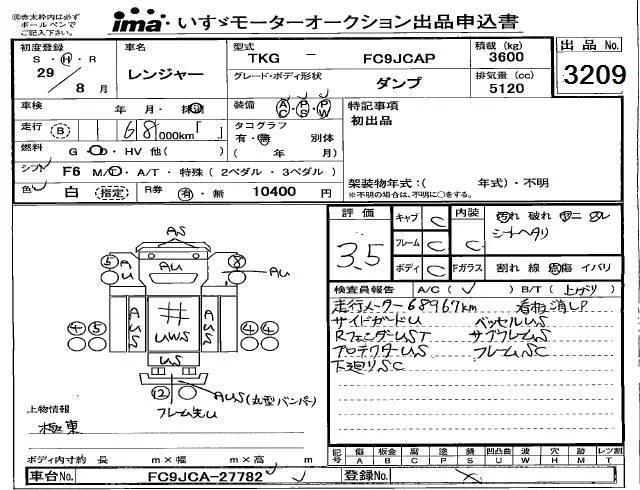 ㊟赤太枠内は必ず
ボールペンで
ご記入下さい。
ima いすゞモーターオークション出品申込書
初度登録 車名 型式 TKG － FC9JCAP 積載(kg) 3600 出品No.
S・H・R 29 8月 レンジャー グレード・ボディ形状 ダンプ 排気量(cc) 5120 3209
車検 年 月・抹消 装備 AC PS PW 特記事項
走行 (B) 68 000km「 」 タコグラフ 有・無 別体 初出品
燃料 G・D・HV 他( ) ( 年 月)
シフト F6 M/D・A/T・特殊(2ペダル・3ペダル) 架装物年式:( 年式)・不明
※不明の場合は、不明に○をする。
色 白 (指定) R券 有・無 10400円
評価 3.5 キャブ C 内装 C 汚れ 破れ
シートヘタリ
フレーム C
ボディ C Fガラス 割れ 線 傷 イバリ
AS
⑤ A U AU ⑧ AU
④ ⑤ A U S # UWS A U S ④ ④
US
⑫ AUS(丸型バンパー)
フレーム先U
検査員報告 A/C(✓) B/T(上グリ)
走行メーター68967km 看板消しP
サイドガードU ベッセルUS
RフェンダーUST サブフレームS
プロテクターUS フレームSC
下廻りSC
上物情報
極東
ボディ内寸約 長 m×幅 m×高 m
記号 傷 A 板金 B 腐 C 塗 P 錆 S 凹凸曲 U 波 W 穴 H 跡 M レツ割 T
車台No. FC9JCA-27782 登録No.